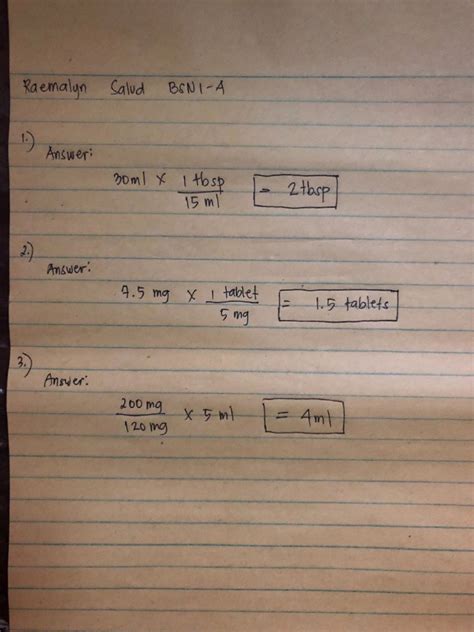 Raemalyn Salud BSN1-A
1.) Answer:
30ml × 1 tbsp / 15 ml = 2tbsp
2.) Answer:
7.5 mg × 1 tablet / 5 mg = 1.5 tablets
3.) Answer:
200 mg / 120 mg × 5 ml = 4ml